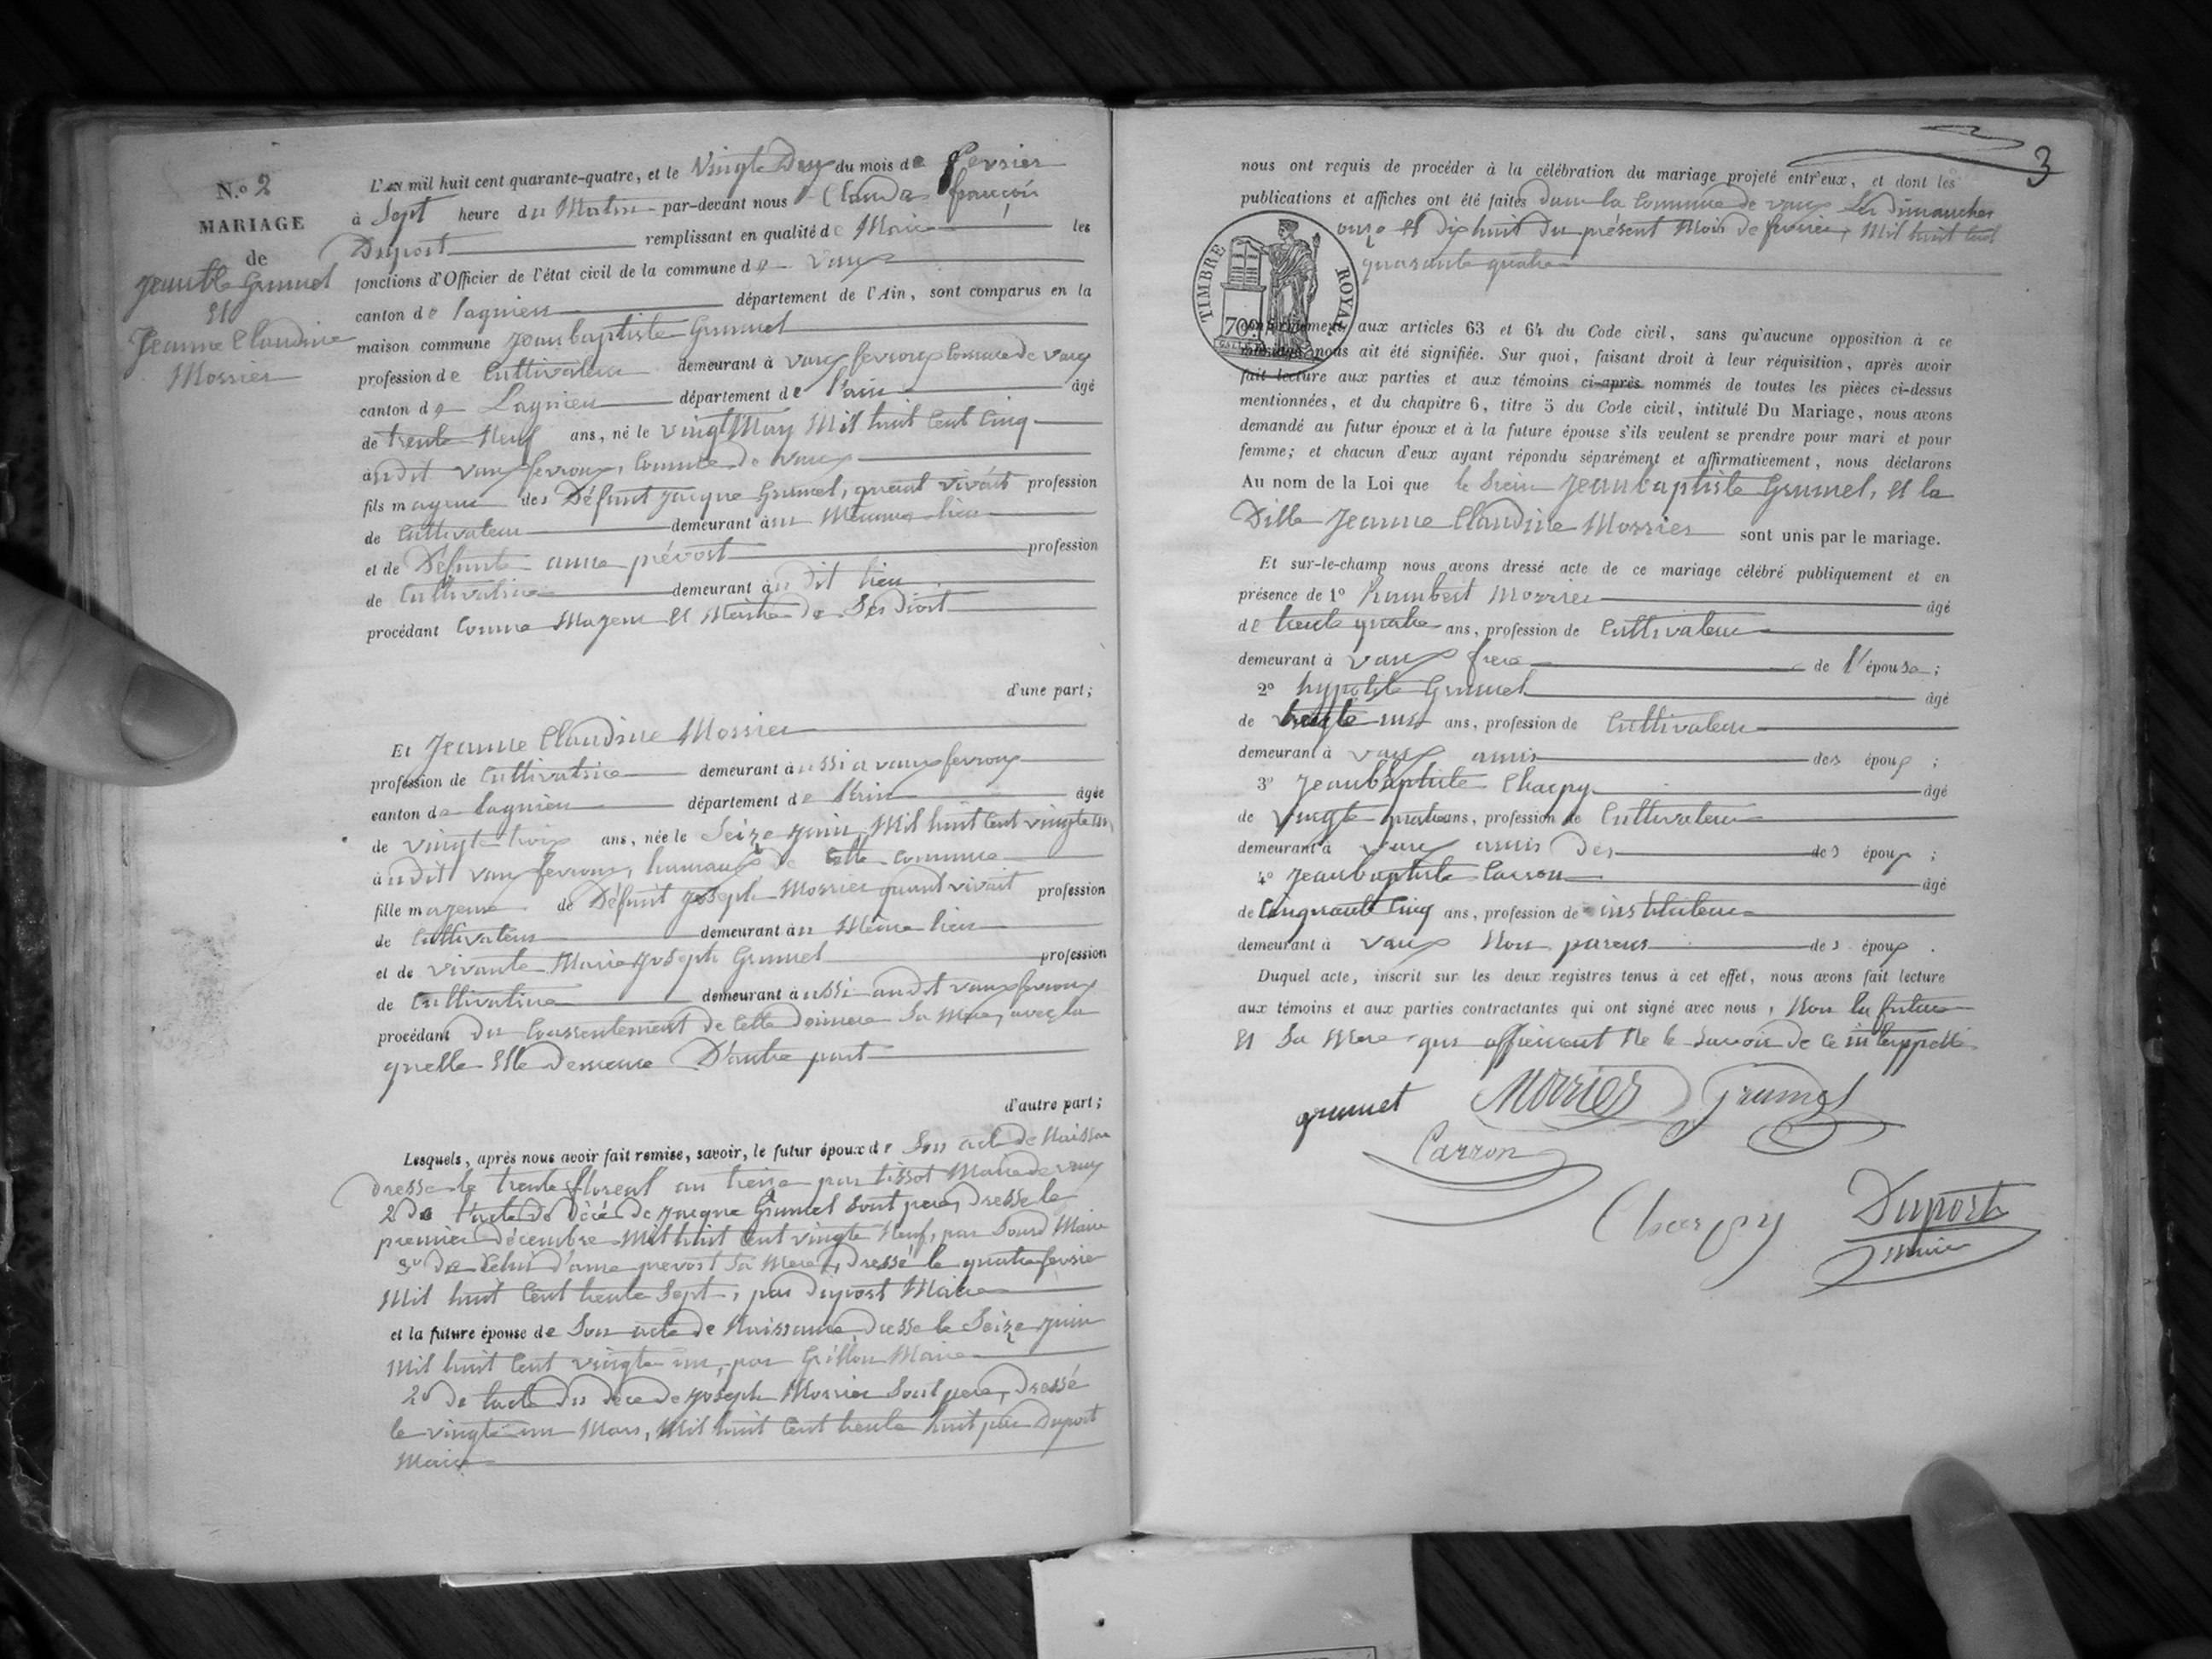 N.º 2
MARIAGE
de
Jean Bte Grumet
Et
Jeanne Claudine
Morrier
L'an mil huit cent quarante-quatre, et le Vingt Deux du mois de fevrier
à Sept heure du Matin par-devant nous Claude françois
Duport remplissant en qualité de Maire les
fonctions d'Officier de l'état civil de la commune de Vaux
canton de lagnieu département de l'Ain, sont comparus en la
maison commune Jean baptiste Grumet
profession de Cultivateur demeurant à vaux fevroux Commune de vaux
canton de Lagnieu département de l'ain âgé
de trente Neuf ans, né le vingt May Mil huit Cent Cinq
àudit vaux fevroux, Commune de vaux
fils mageur des Défunt Jacque Grumet, quant vivait profession
de Cultivateur demeurant àu Meme lieu
et de Défunte anne prévost profession
de Cultivatrice demeurant àu Dit lieu
procédant Comme Majeur et Maitre de Ses Droit
d'une part;
Et Jeanne Claudine Morrier
profession de Cultivatrice demeurant àussi a vaux fevroux
canton de lagnieu département de l'Ain âgée
de vingte trois ans, née le Seize juin Mil huit Cent vingte un
àudit vaux fevroux, hameau de Cette Commune
fille majeure de Défunt Joseph Morrier quant vivait profession
de Cultivateur demeurant àu Même lieu
et de vivante Marie Joseph Grumet profession
de Cultivatrice demeurant àussi audit vaux fevroux
procédant du Consentement de Cette Derniere Sa Mere, avec la
quelle Elle Demeure D'autre part
d'autre part;
Lesquels, après nous avoir fait remise, savoir, le futur époux de Son acte de Naissance
Dresse le trente floreal an treize par tissot Maire de vaux
2º De l'acte de Décé de Jacque Grumet Sont pere, Dresse le
premier décembre Mil huit Cent vingte Neuf, par Sourd Maire
3º De Celui d'anne prevost Sa Mere, Dressé le quatre fevrier
Mil huit Cent trente Sept, par Duport Maire
et la future épouse de Son acte de Naissance Dresse le Seize juin
Mil huit Cent vingte un, par Grillon Maire
2º De lacte du Déce de Joseph Morrier Sont pere, Dressé
le vingte un Mars, Mil huit Cent trente huit par Duport
Maire
3
nous ont requis de procéder à la célébration du mariage projeté entr'eux, et dont les
publications et affiches ont été faites dans la Commune de vaux Les Dimanches
onze et Dix huit Du présent Mois de fevrier, Mil huit Cent
quarante quatre
TIMBRE ROYAL
70
conformément aux articles 63 et 64 du Code civil, sans qu'aucune opposition à ce
mariage nous ait été signifiée. Sur quoi, faisant droit à leur réquisition, après avoir
fait lecture aux parties et aux témoins ci-après nommés de toutes les pièces ci-dessus
mentionnées, et du chapitre 6, titre 5 du Code civil, intitulé Du Mariage, nous avons
demandé au futur époux et à la future épouse s'ils veulent se prendre pour mari et pour
femme; et chacun d'eux ayant répondu séparément et affirmativement, nous déclarons
Au nom de la Loi que le Sieur Jean baptiste Grumet, et la
Dlle Jeanne Claudine Morrier sont unis par le mariage.
Et sur-le-champ nous avons dressé acte de ce mariage célébré publiquement et en
présence de 1º Rambert Morrier âgé
de trente quatre ans, profession de Cultivateur
demeurant à vaux frere de l'épouse;
2º hypolite Grumet âgé
de vingte un ans, profession de Cultivateur
demeurant à vaux amis des époux;
3º Jean baptiste Charpy âgé
de vingte quatre ans, profession de Cultivateur
demeurant à vaux amis Des des époux;
4º Jean baptiste Carron âgé
de Cinquante Cinq ans, profession de instituteur
demeurant à vaux Non parent des époux.
Duquel acte, inscrit sur les deux registres tenus à cet effet, nous avons fait lecture
aux témoins et aux parties contractantes qui ont signé avec nous, Non la future
Et Sa Mere qui affirment Ne le Savoir de ce interppellé
grumet Morrier Grumet
Carron
Charpy Duport
maire